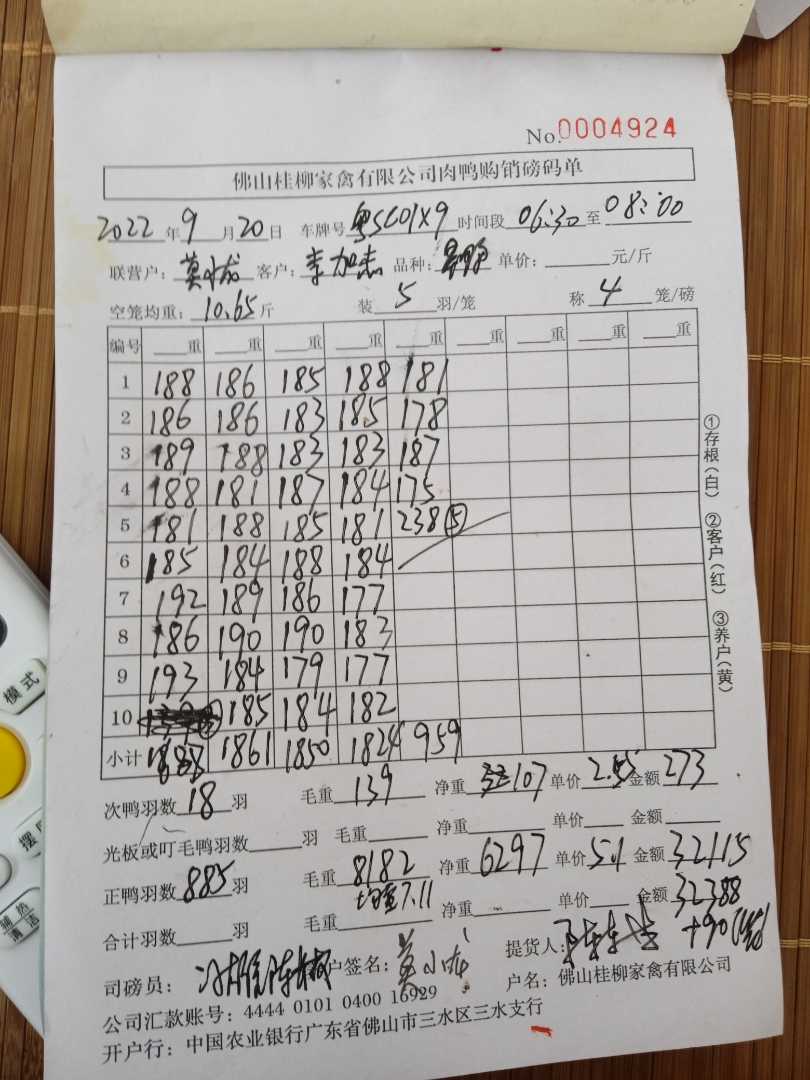 No.0004924
佛山桂柳家禽有限公司肉鸭购销磅码单
2022年9月20日 车牌号粤SC01X9时间段06:30至08:00
联营户:莫小龙 客户:李加志 品种: 单价: 元/斤
空笼均重:10.65斤 装5羽/笼 称4笼/磅
编号 重 重 重 重 重 重 重 重 重
1 188 186 185 188 181
2 186 186 183 185 178
3 189 188 183 183 187
4 188 181 187 184 175
5 181 188 185 181 238⑤
6 185 184 188 184
7 192 189 186 177
8 186 190 190 183
9 193 184 179 177
10 185 184 182
小计 1688 1861 1850 1824 959
次鸭羽数18羽 毛重139 净重107 单价2.55金额273
光板或叮毛鸭羽数 羽 毛重 净重 单价 金额
正鸭羽数885羽 毛重8182 净重6297 单价5.1 金额32115
均重7.11
合计羽数 羽 毛重 净重 单价 金额32388
+90
司磅员: 户签名:莫小龙 提货人:
公司汇款账号:4444 0101 0400 16929 户名:佛山桂柳家禽有限公司
开户行:中国农业银行广东省佛山市三水区三水支行
①存根(白) ②客户(红) ③养户(黄)
模式
摆
辅热
清洁